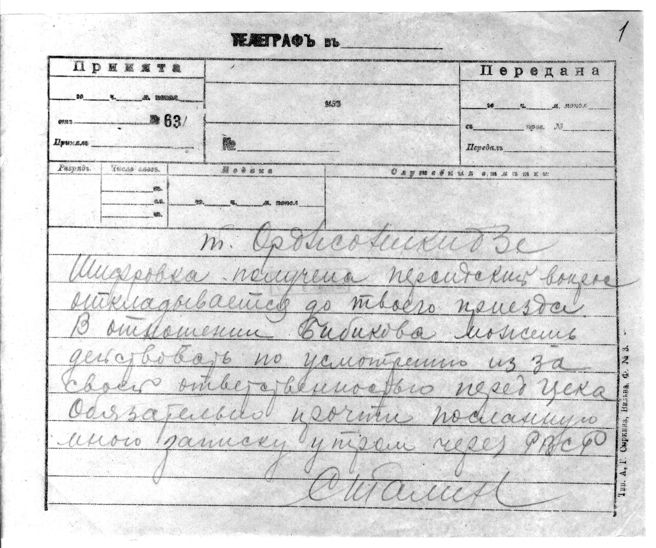 1
ТЕЛЕГРАФЪ въ
Принята
Передана
го ч. м. попол
192
го ч. м. попол
№ 63/
съ пров. №
Принялъ
№
Передалъ
Разрядъ. Число словъ. Подана Служебныя отмѣтки
го ч. м. попол
т. Орджоникидзе
Шифровка получена персидский вопрос
откладывается до твоего приезда
В отношении Бибикова можешь
действовать по усмотрению из за
своей ответственностью перед Цека
Обязательно прочти посланную
мною записку утром через
Сталин
Тип. А. Г. Сыркина, Вильна, Ф. № 3.